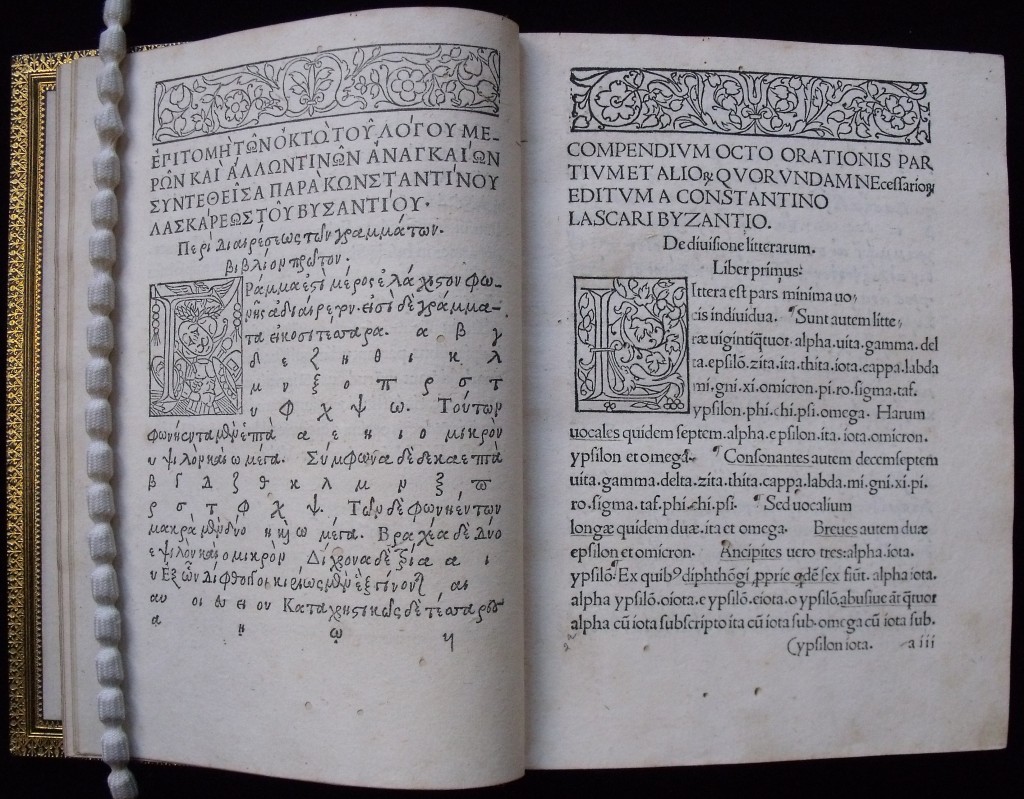 ΕΡΙΤΟΜΗ ΤΩ͂Ν Ο᾽ΚΤΩ` ΤΟΥ͂ ΛΟ´ΓΟΥ ΜΕ-
ΡΩ͂Ν ΚΑΙ` Α῎ΛΛΩΝ ΤΙΝΩ͂Ν Α᾽ΝΑΓΚΑΙ´ΩΝ
ΣΥΝΤΕΘΕΙ͂ΣΑ ΠΑΡΑ` ΚΩΝΣΤΑΝΤΙ´ΝΟΥ
ΛΑΣΚΑ´ΡΕΩΣ ΤΟΥ͂ ΒΥΖΑΝΤΙ´ΟΥ·
Περὶ Διαιρέσεως τῶν γραμμάτων.
βιβλίον πρῶτον.
Γράμμα ἐστὶ μέρος ἐλάχιστον φω-
νῆς ἀδιαίρετον. εἰσὶ δὲ γράμμα-
τα εἰκοσιτέσσαρα. α β γ
δ ε ζ η θ ι κ λ
μ ν ξ ο π ρ σ τ
υ φ χ ψ ω. Τούτων
φωνήεντα μὲν ἑπτὰ α ε η ι ο μικρὸν
υ ψιλὸν καὶ ω μέγα. Σύμφωνα δὲ δεκαεπτὰ
β γ δ ζ θ κ λ μ ν ξ π
ρ σ τ φ χ ψ. Τῶν δὲ φωνηέντων
μακρὰ μὲν δύο η καὶ ω μέγα. Βραχέα δὲ δύο
ε ψιλὸν καὶ ο μικρὸν Δίχρονα δὲ τρία α ι
υ Ἐξ ὧν δίφθογγοι κυρίως μὲν ἓξ αι
αυ οι ει ου Καταχρηστικῶς δὲ τέσσαρες
ᾳ ῃ ῳ υι
COMPENDIVM OCTO ORATIONIS PAR
TIVM ET ALIOꝝ QVORVNDAM NEceſſarioꝝ
EDITVM A CONSTANTINO
LASCARI BYZANTIO.
De diuiſione litterarum.
Liber primus.
LIttera eſt pars minima uo/
cis indiuidua. Sunt autem litte/
ræ uigintiq̃tuor. alpha. uita. gamma. del
ta. epſilõ. zita. ita. thita. iota. cappa. labda
mi. gni. xi. omicron. pi. ro. ſigma. taf.
ypſilon. phi. chi. pſi. omega. Harum
uocales quidem ſeptem. alpha. epſilon. ita. iota. omicron.
ypſilon et omega. Conſonantes autem decemſeptem
uita. gamma. delta. zita. thita. cappa. labda. mi. gni. xi. pi.
ro. ſigma. taf. phi. chi. pſi. Sed uocalium
longæ quidem duæ. ita et omega. Breues autem duæ
epſilon et omicron. Ancipites uero tres: alpha. iota.
ypſilõ. Ex quibꝰ diphthõgi ꝓprie qdẽ ſex fiũt. alpha iota.
alpha ypſilõ. o iota. e ypſilõ. e iota. o ypſilõ. abuſiue aũt q̃tuor
alpha cũ iota ſubſcripto ita cũ iota ſub. omega cũ iota ſub.
(ypſilon iota. a iii